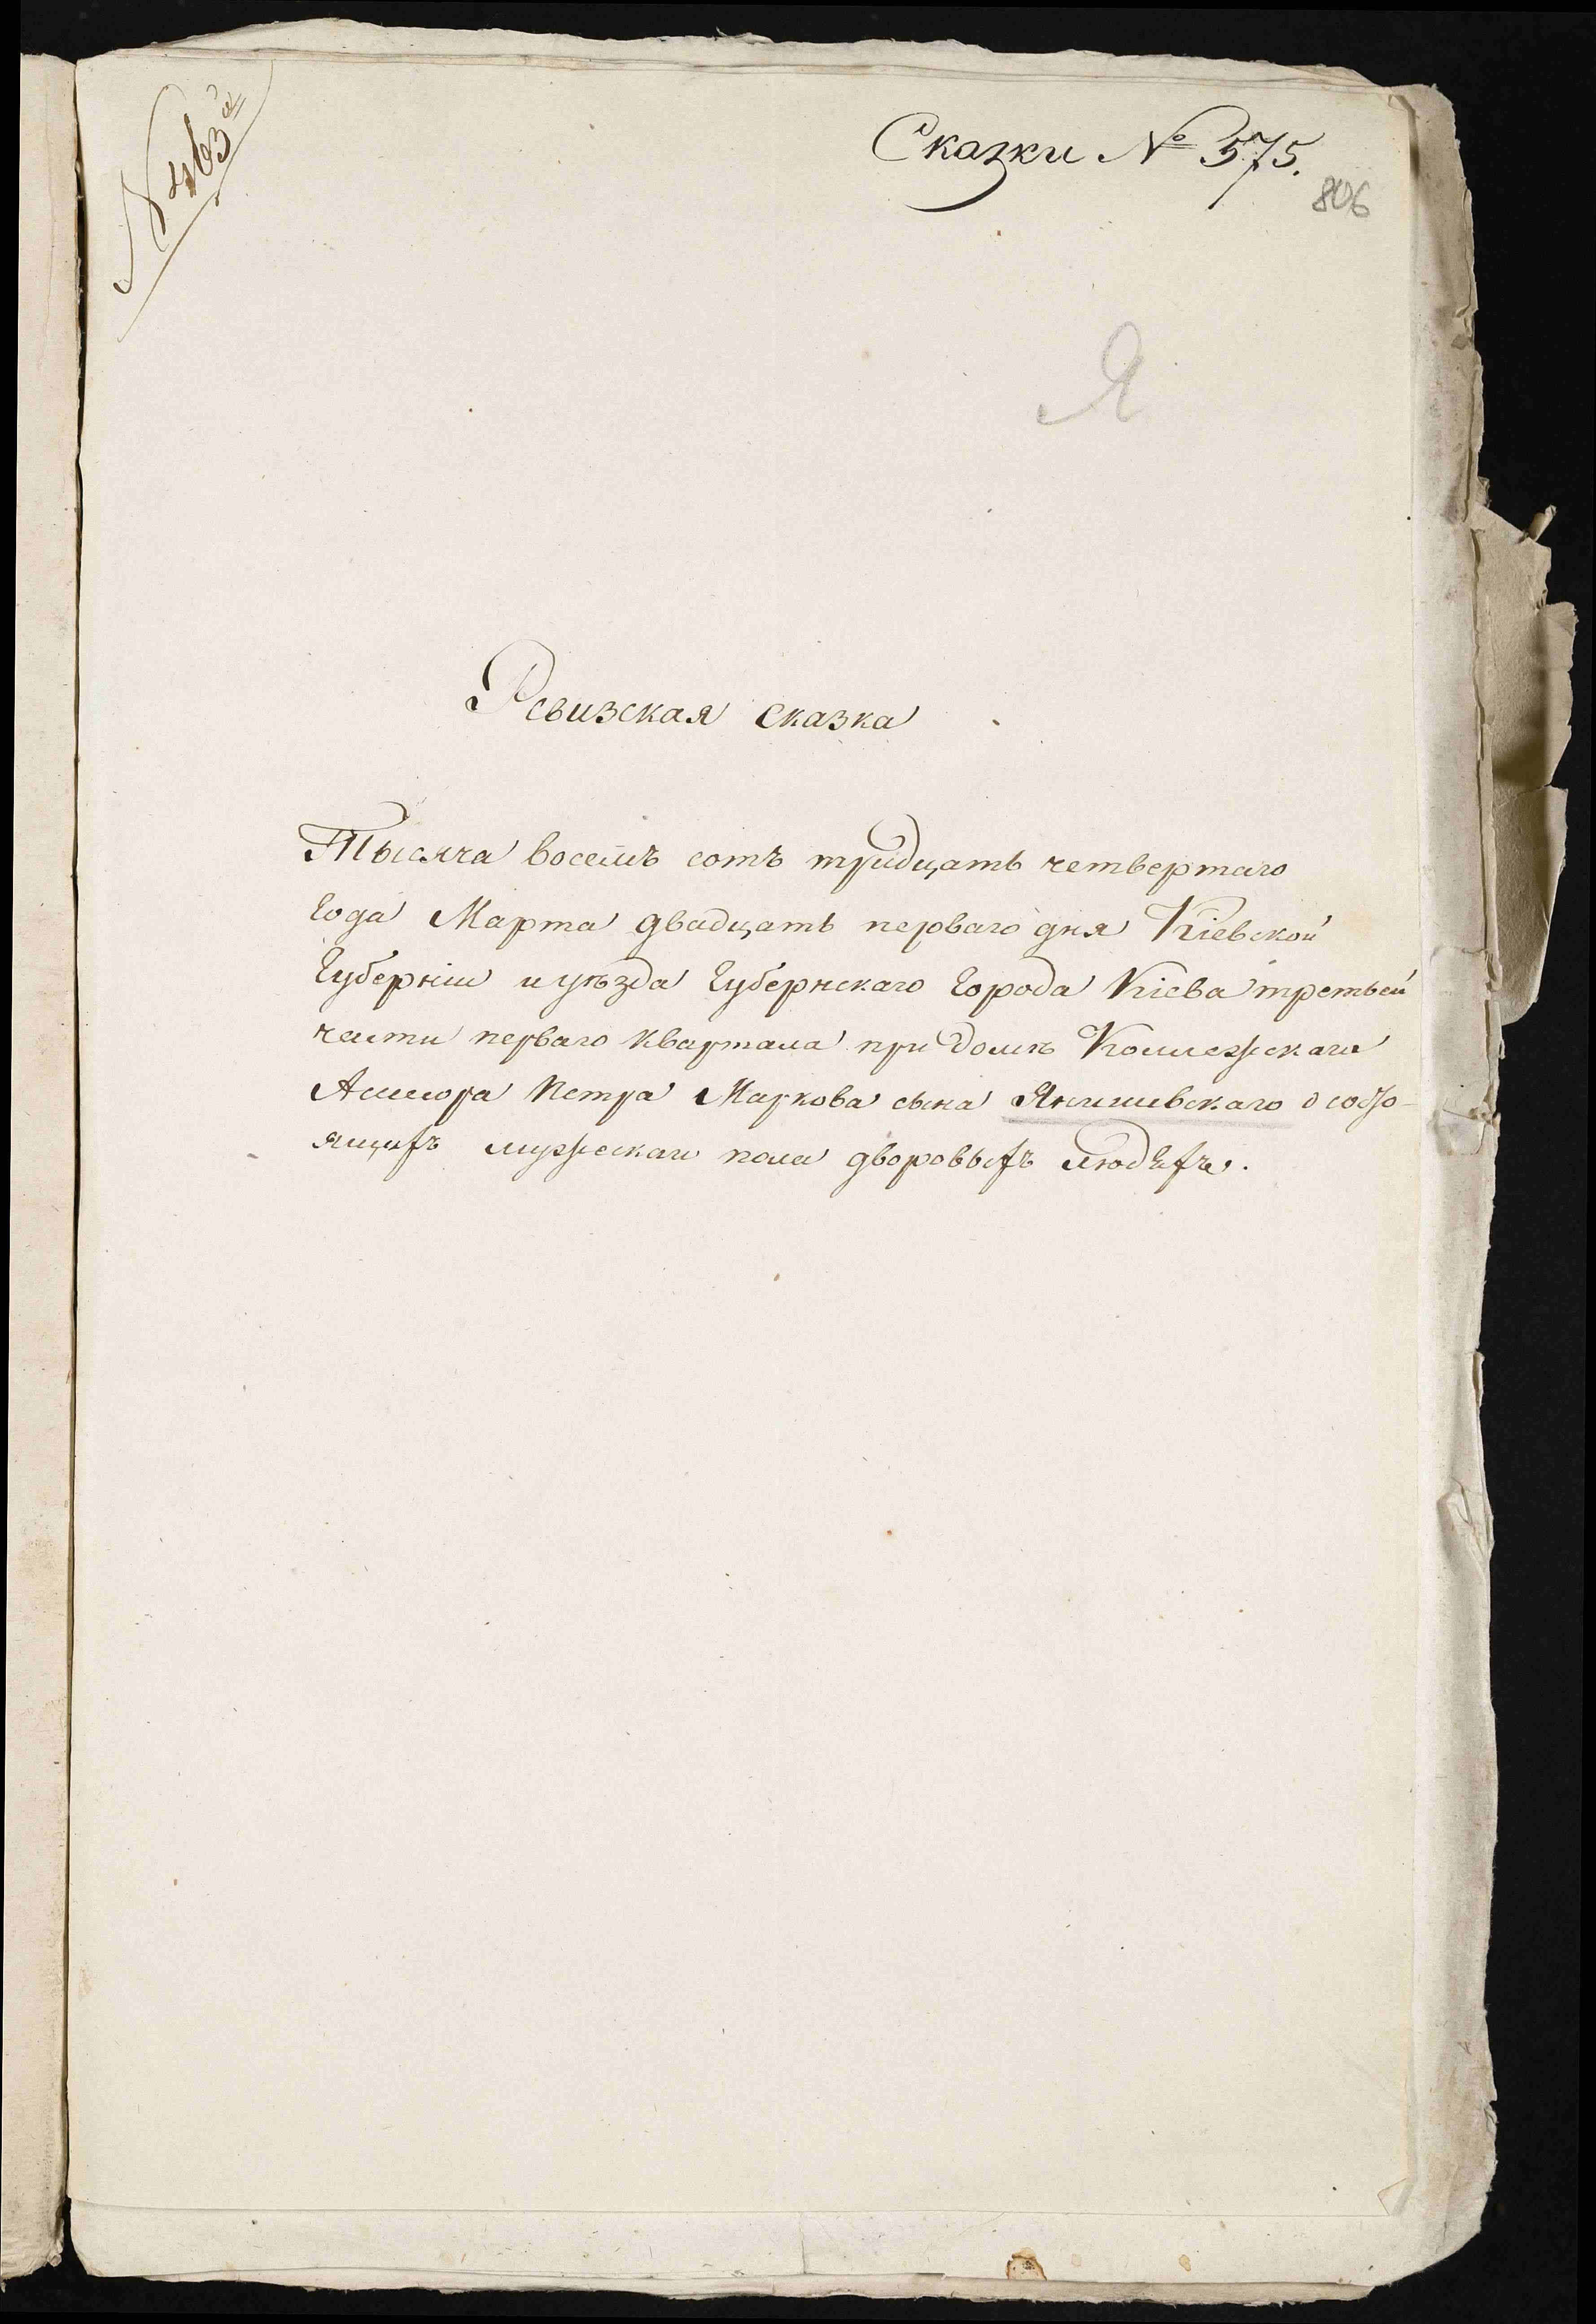 № 463й
Сказки № 575.
806
Я
Ревизская сказка
Тысяча восемъ сотъ тридцать четвертаго
года Марта двадцать перваго дня Кіевской
Губерніи и уѣзда Губернскаго Города Кіева третьей
части перваго квартала при домѣ Коллежскаго
Ассесора Петра Маркова сына Янишевскаго о состо-
ящихъ мужескаго пола дворовыхъ людѣхъ.